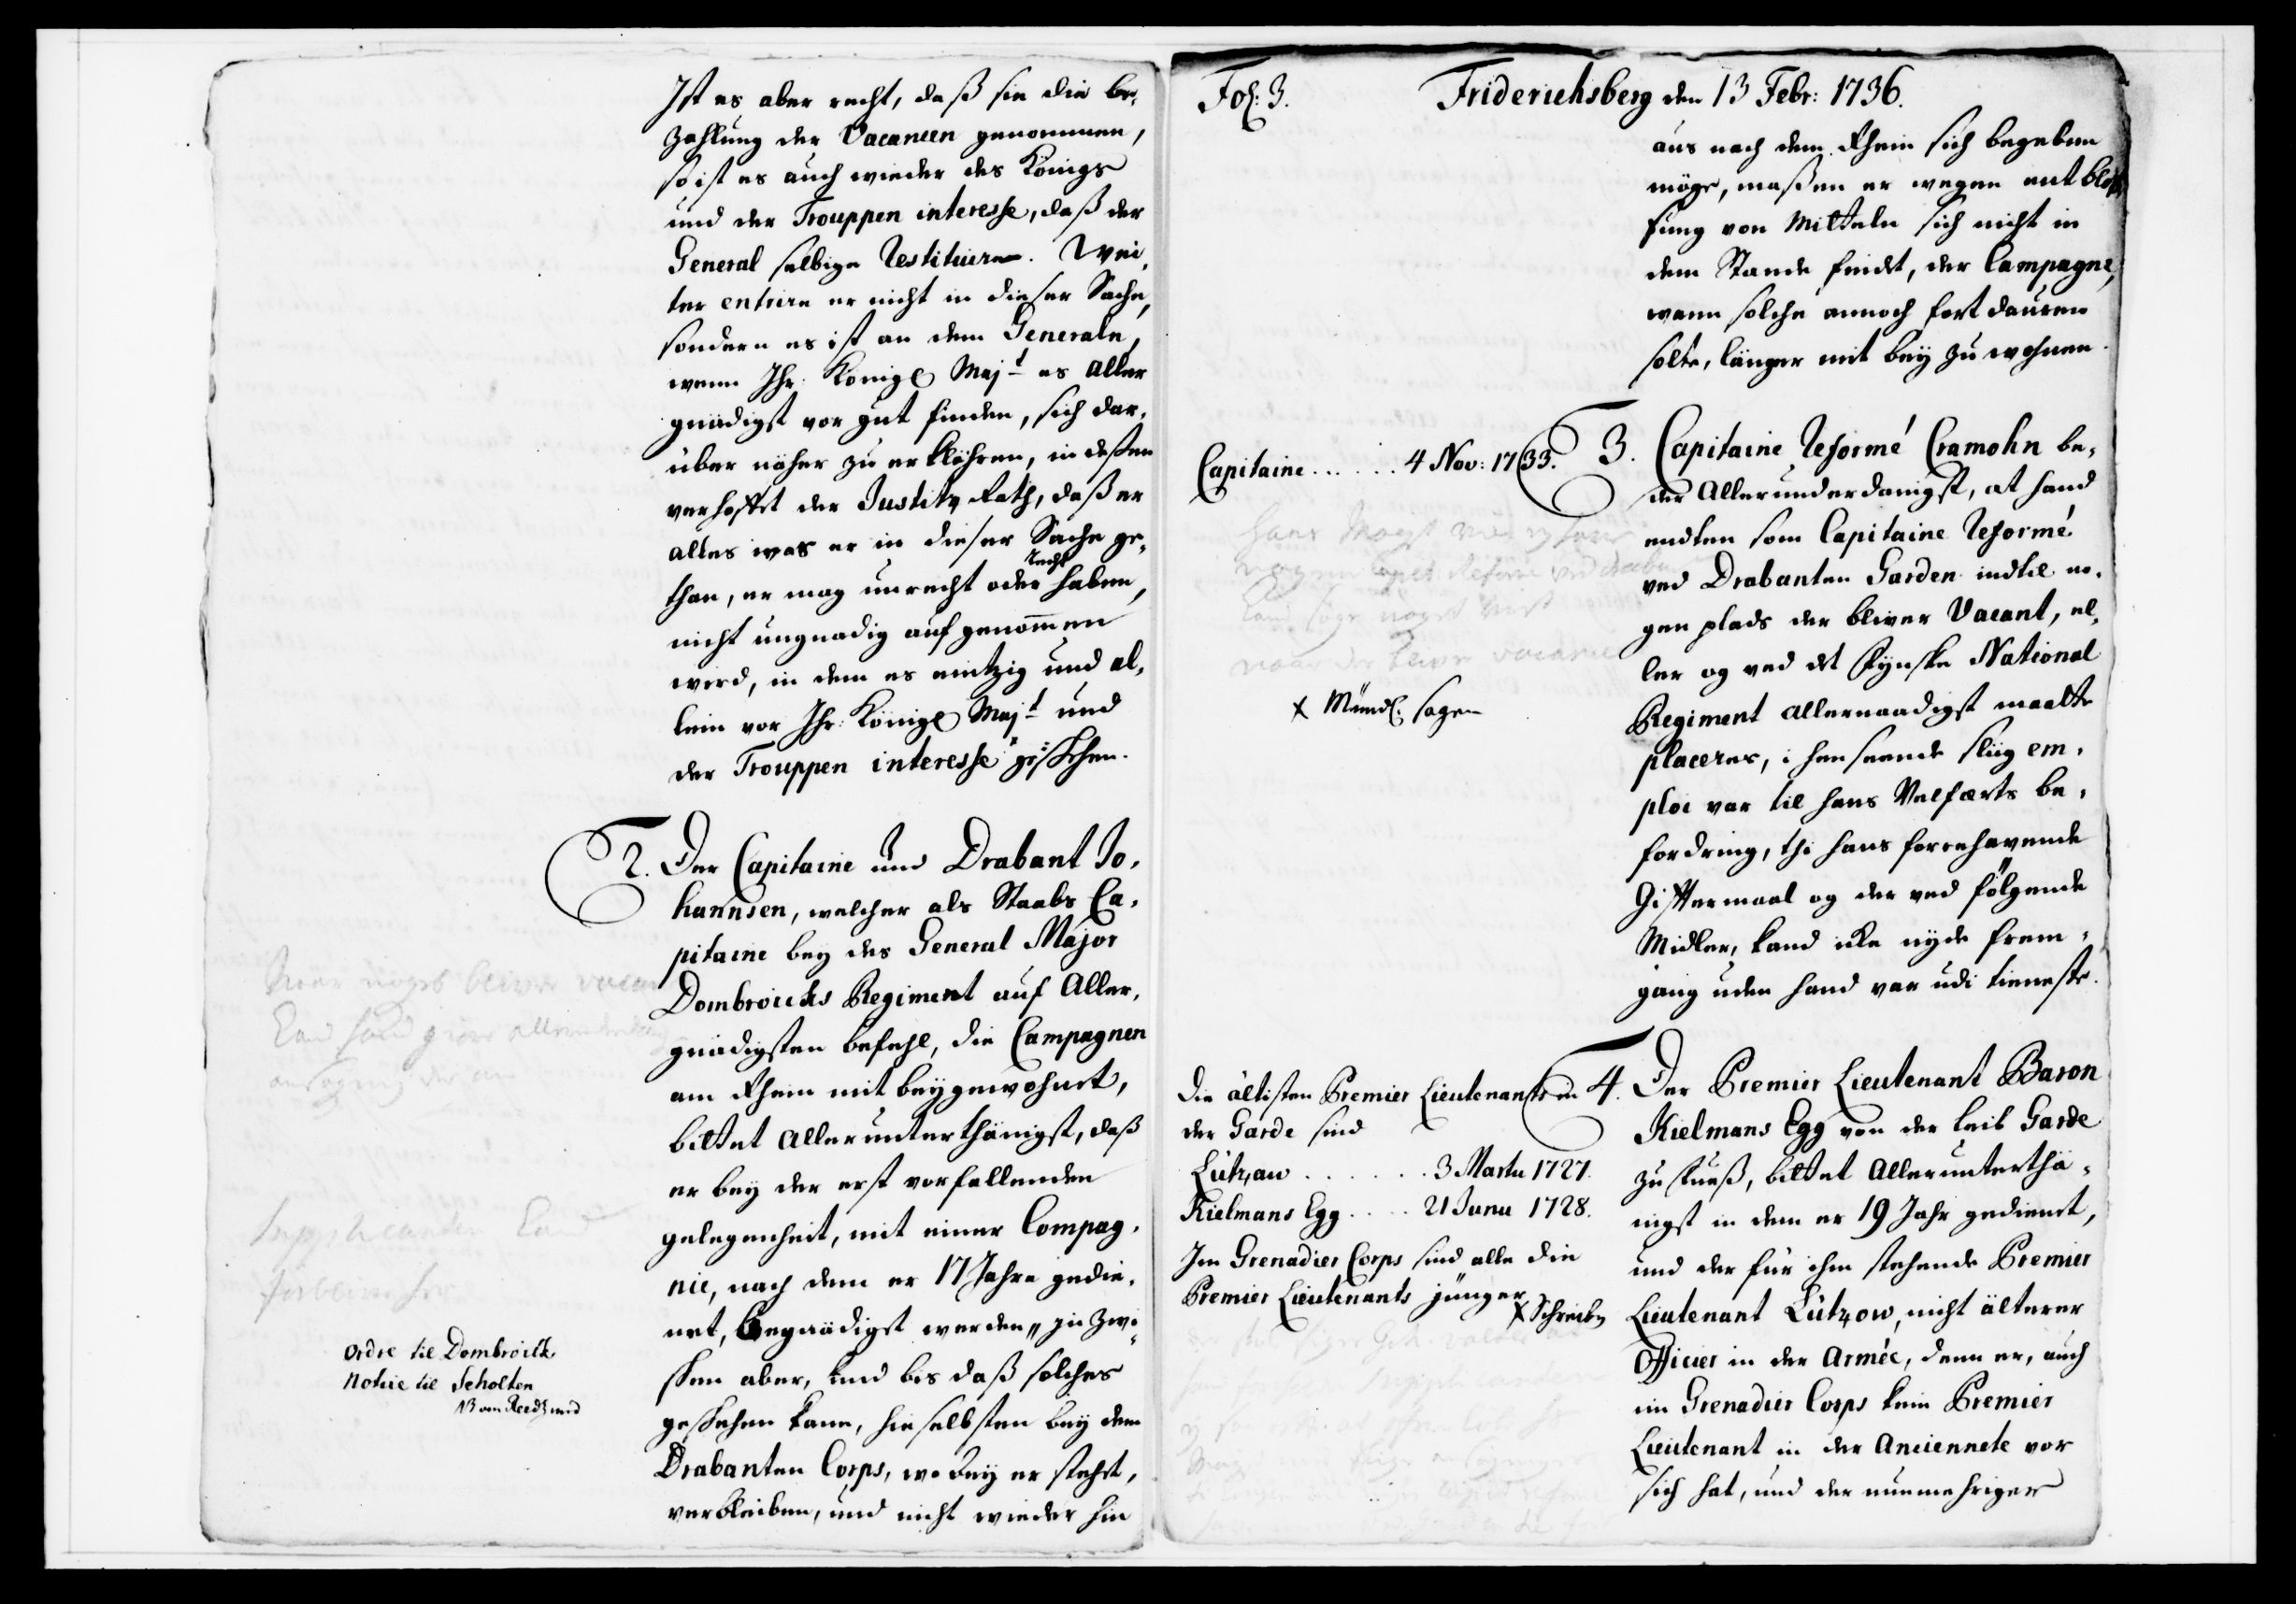 Ist es aber recht, daß sie die be-
zahlung der Vacancen genommen,
so ist es auch wieder des Königs
und der Trouppen interesse, daß der
General selbige Restituire. Wei-
ter entrire er nicht in dieser Sache,
sondern es ist an dem Generale,
wenn Ihr: Königl Majt es Aller
gnädigst vor gut finden, sich dar-
über näher zu erklähren, in deßen
verhoffet der Justitz Rath, daß er
alles was er in dieser Sache ge-
than, er mag unrecht oder recht haben,
nicht ungnädig aufgenommen
werd, in dem es eintzig und al-
lein vor Ihr: Königl Majt und
der Trouppen interesse geschehen.
2. Der Capitaine und Drabant Jo-
hannsen, welcher als Staabs Ca-
pitaine bey des General Major
Dombroicks Regiment auf Aller-
gnädigsten befehl, die Campagnen
am Rhein mit beygewohnet,
bittet Allerunterthänigst, daß
er bey der erst vorfallenden
gelegenheit, mit einer Compag-
nie, nach dem er 17 Jahre gedie-
net, begnädigt werden, in zwi-
schen aber, und bis daß solches
geschehen kann, hieselbsten bey dem
Drabanten Corps, wobey er stehet,
verbleiben, und nicht wieder hin
Naar noget bliver vacant
Kand hand giøre allerunderdanigst
ansøgning der om
Supplicanten Kand
forblive her
Ordre til Dombroick
Notice til Scholten
Fol: 3.
Friderichsberg den 13 Febr: 1736.
aus nach dem Rhein sich begeben
möge, maßen er wegen entblö-
ßung von Mitteln sich nicht in
dem Stande findet, der Campagne,
wann solche annoch fort dauren
solte, länger mit bey zu wohnen.
Capitaine ...... 4 Nov: 1733.
3. Capitaine Reformé Cramohn be-
der Allerunderdanigst, at hand
endten som Capitaine Reformé
ved Drabanten Garden indtil no-
gen plads der bliver Vacant, el-
ler og ved det Fynske National
Regiment allernaadigst maatte
placeres, i henseende sliig em-
ploi var til hans Velfærts be-
fordring, thi hans forrehavende
Gifftermaal og der ved følgende
Midler, kand icke nyde frem-
gang uden hand var udi tieneste.
x Mündl. sagen
Die ältisten Premier Lieutenants in
der Garde sind
Lützau ...... 3 Martii 1727.
Kielmans Egg .... 21 Junii 1728.
Im Grenadier Corps sind alle die
Premier Lieutenants jünger
x Schreiben
4. Der Premier Lieutenant Baron
Kielmans Egg von der Leib Garde
zu Fueß, bittet Allerunterthä-
nigst in dem er 19 Jahr gedienet,
und der für ihm stehende Premier
Lieutenant Lützow, nicht älterer
Officier in der Armée, denn er, auch
im Grenadier Corps kein Premier
Lieutenant in der Anciennete vor
sich hat, und der nunmehriger